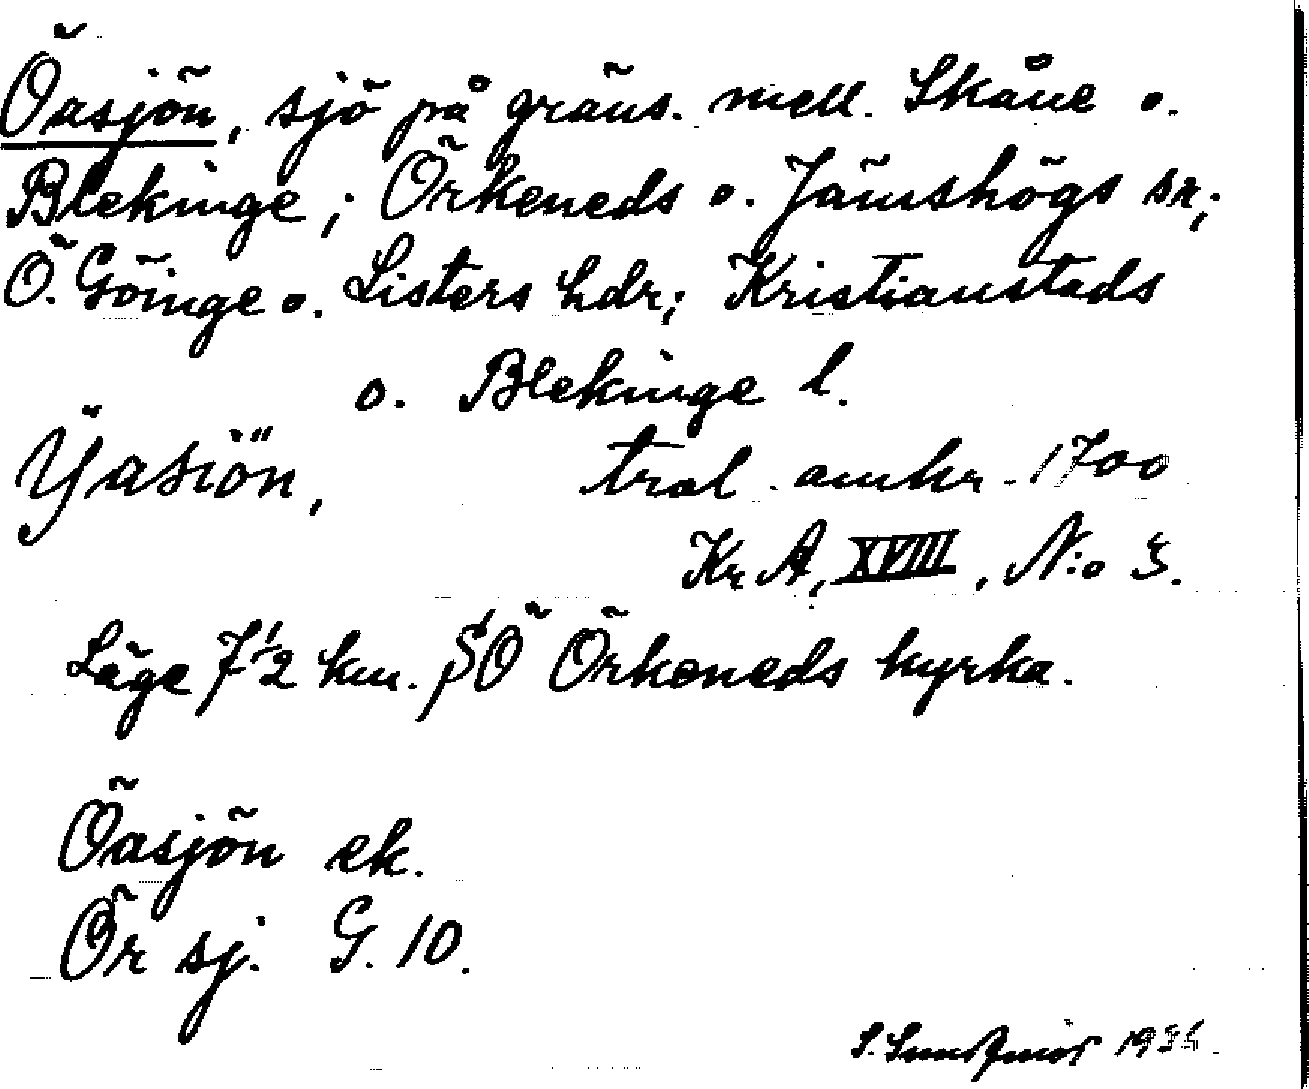 Öasjön, sjö på gräns. mell. Skåne o.
Blekinge; Örkeneds o. Jämshögs sn;
Ö. Göinge o. Listers hdr; Kristianstads
o. Blekinge l.
Ÿasiön, tral. omkr. 1700
Kr A, XVIII, N:o 3.
Läge 7 1/2 km. SÖ Örkeneds kyrka.
Öasjön ek.
Ör sj. G. 10.
S. 19